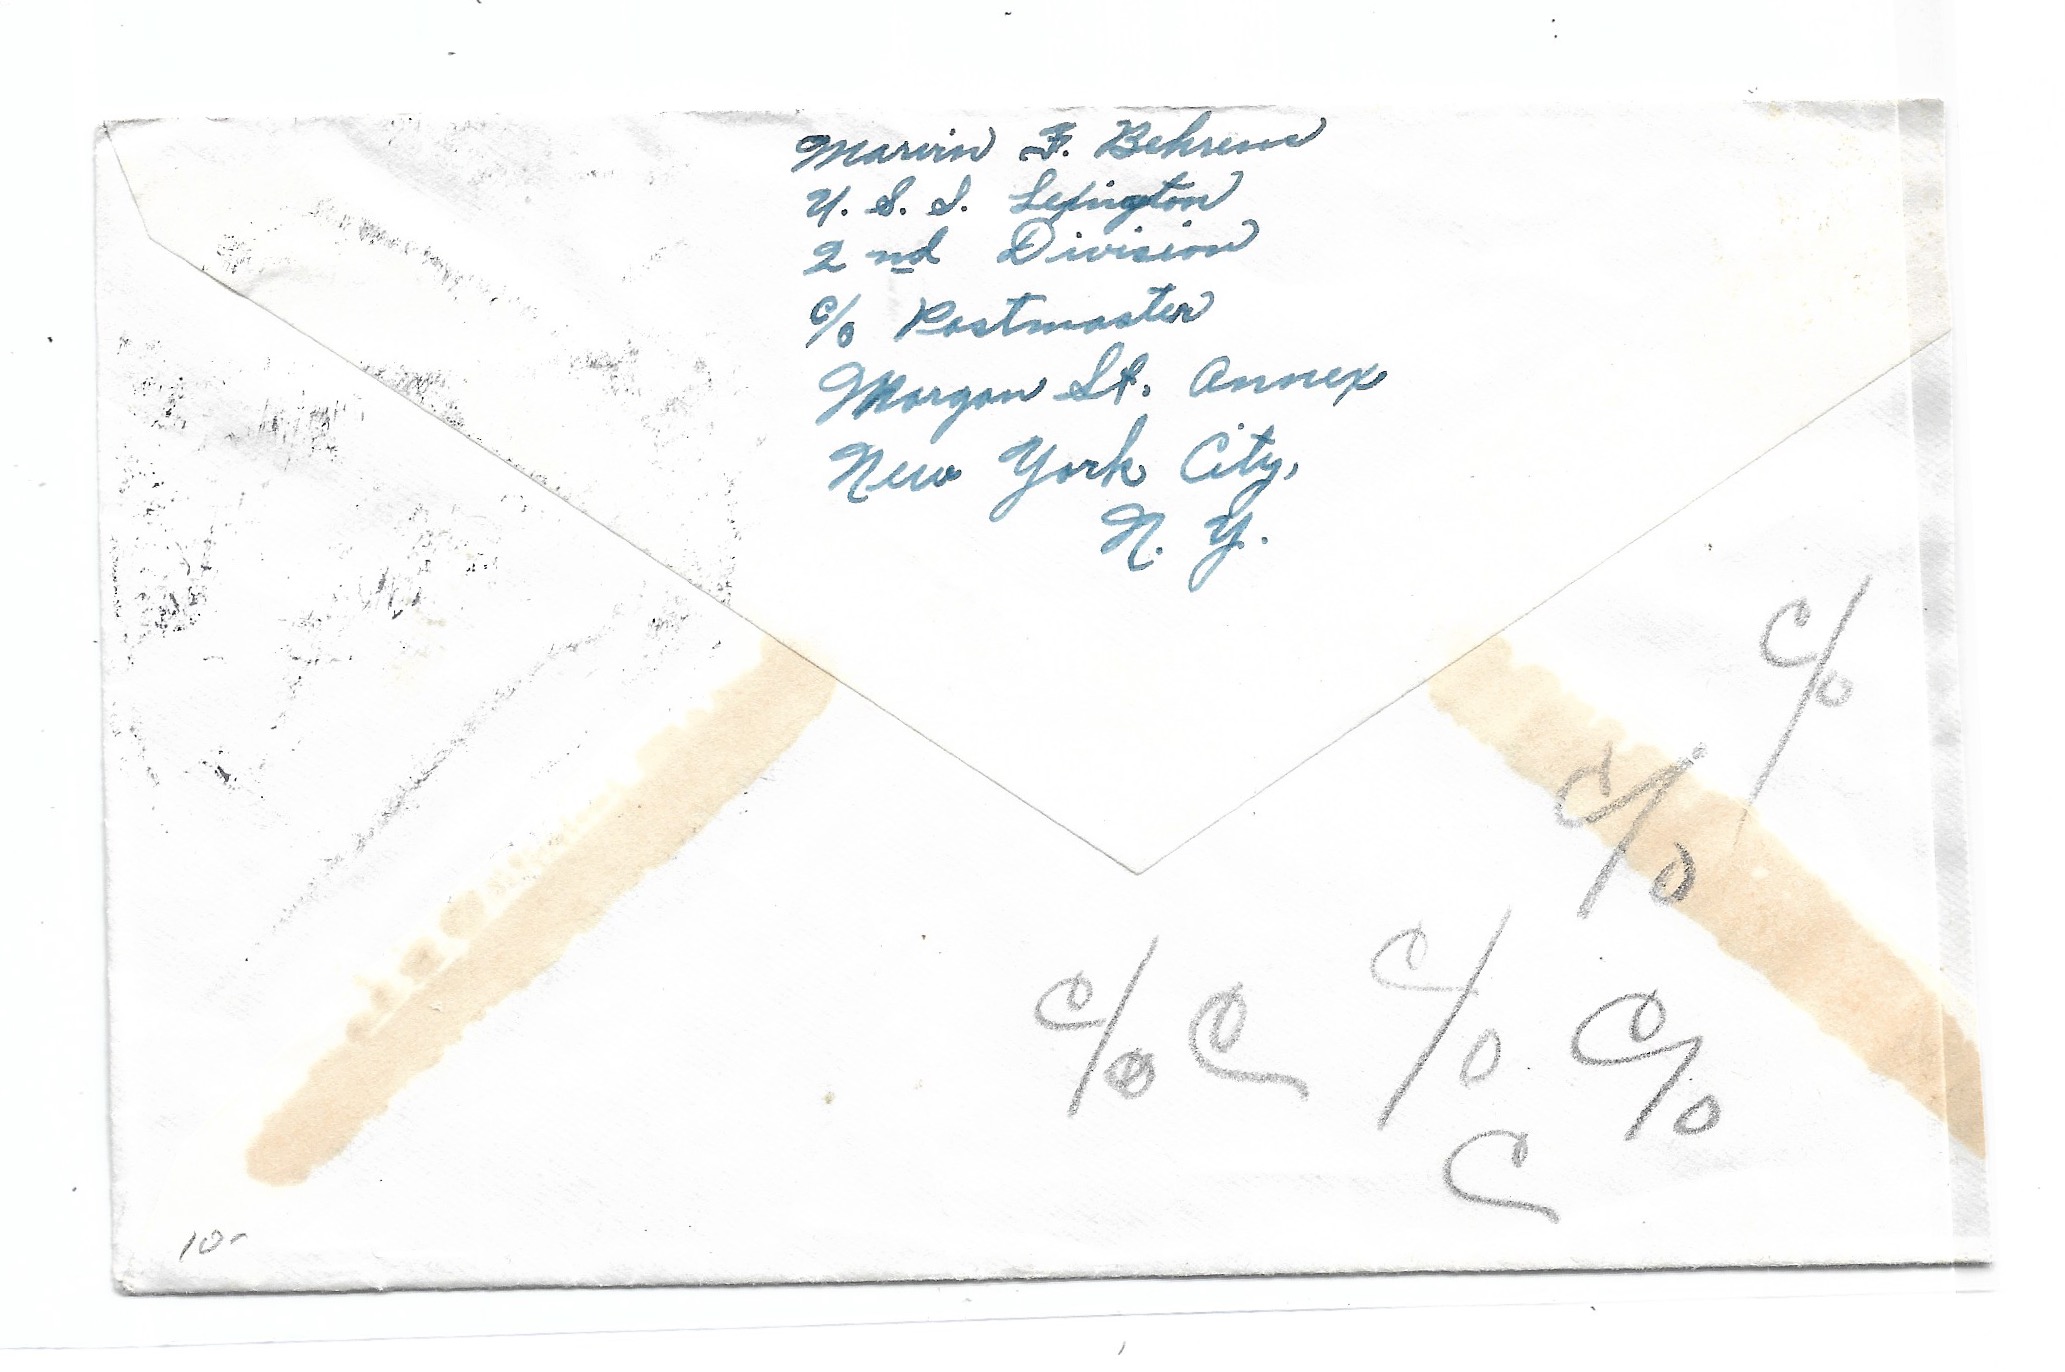 Marvin F. Behrens
U.S.S. Lexington
2nd Division
c/o Postmaster
Morgan St. Annex
New York City,
N.Y.
c/o
c/o
c/o C c/o c/o
C
10-